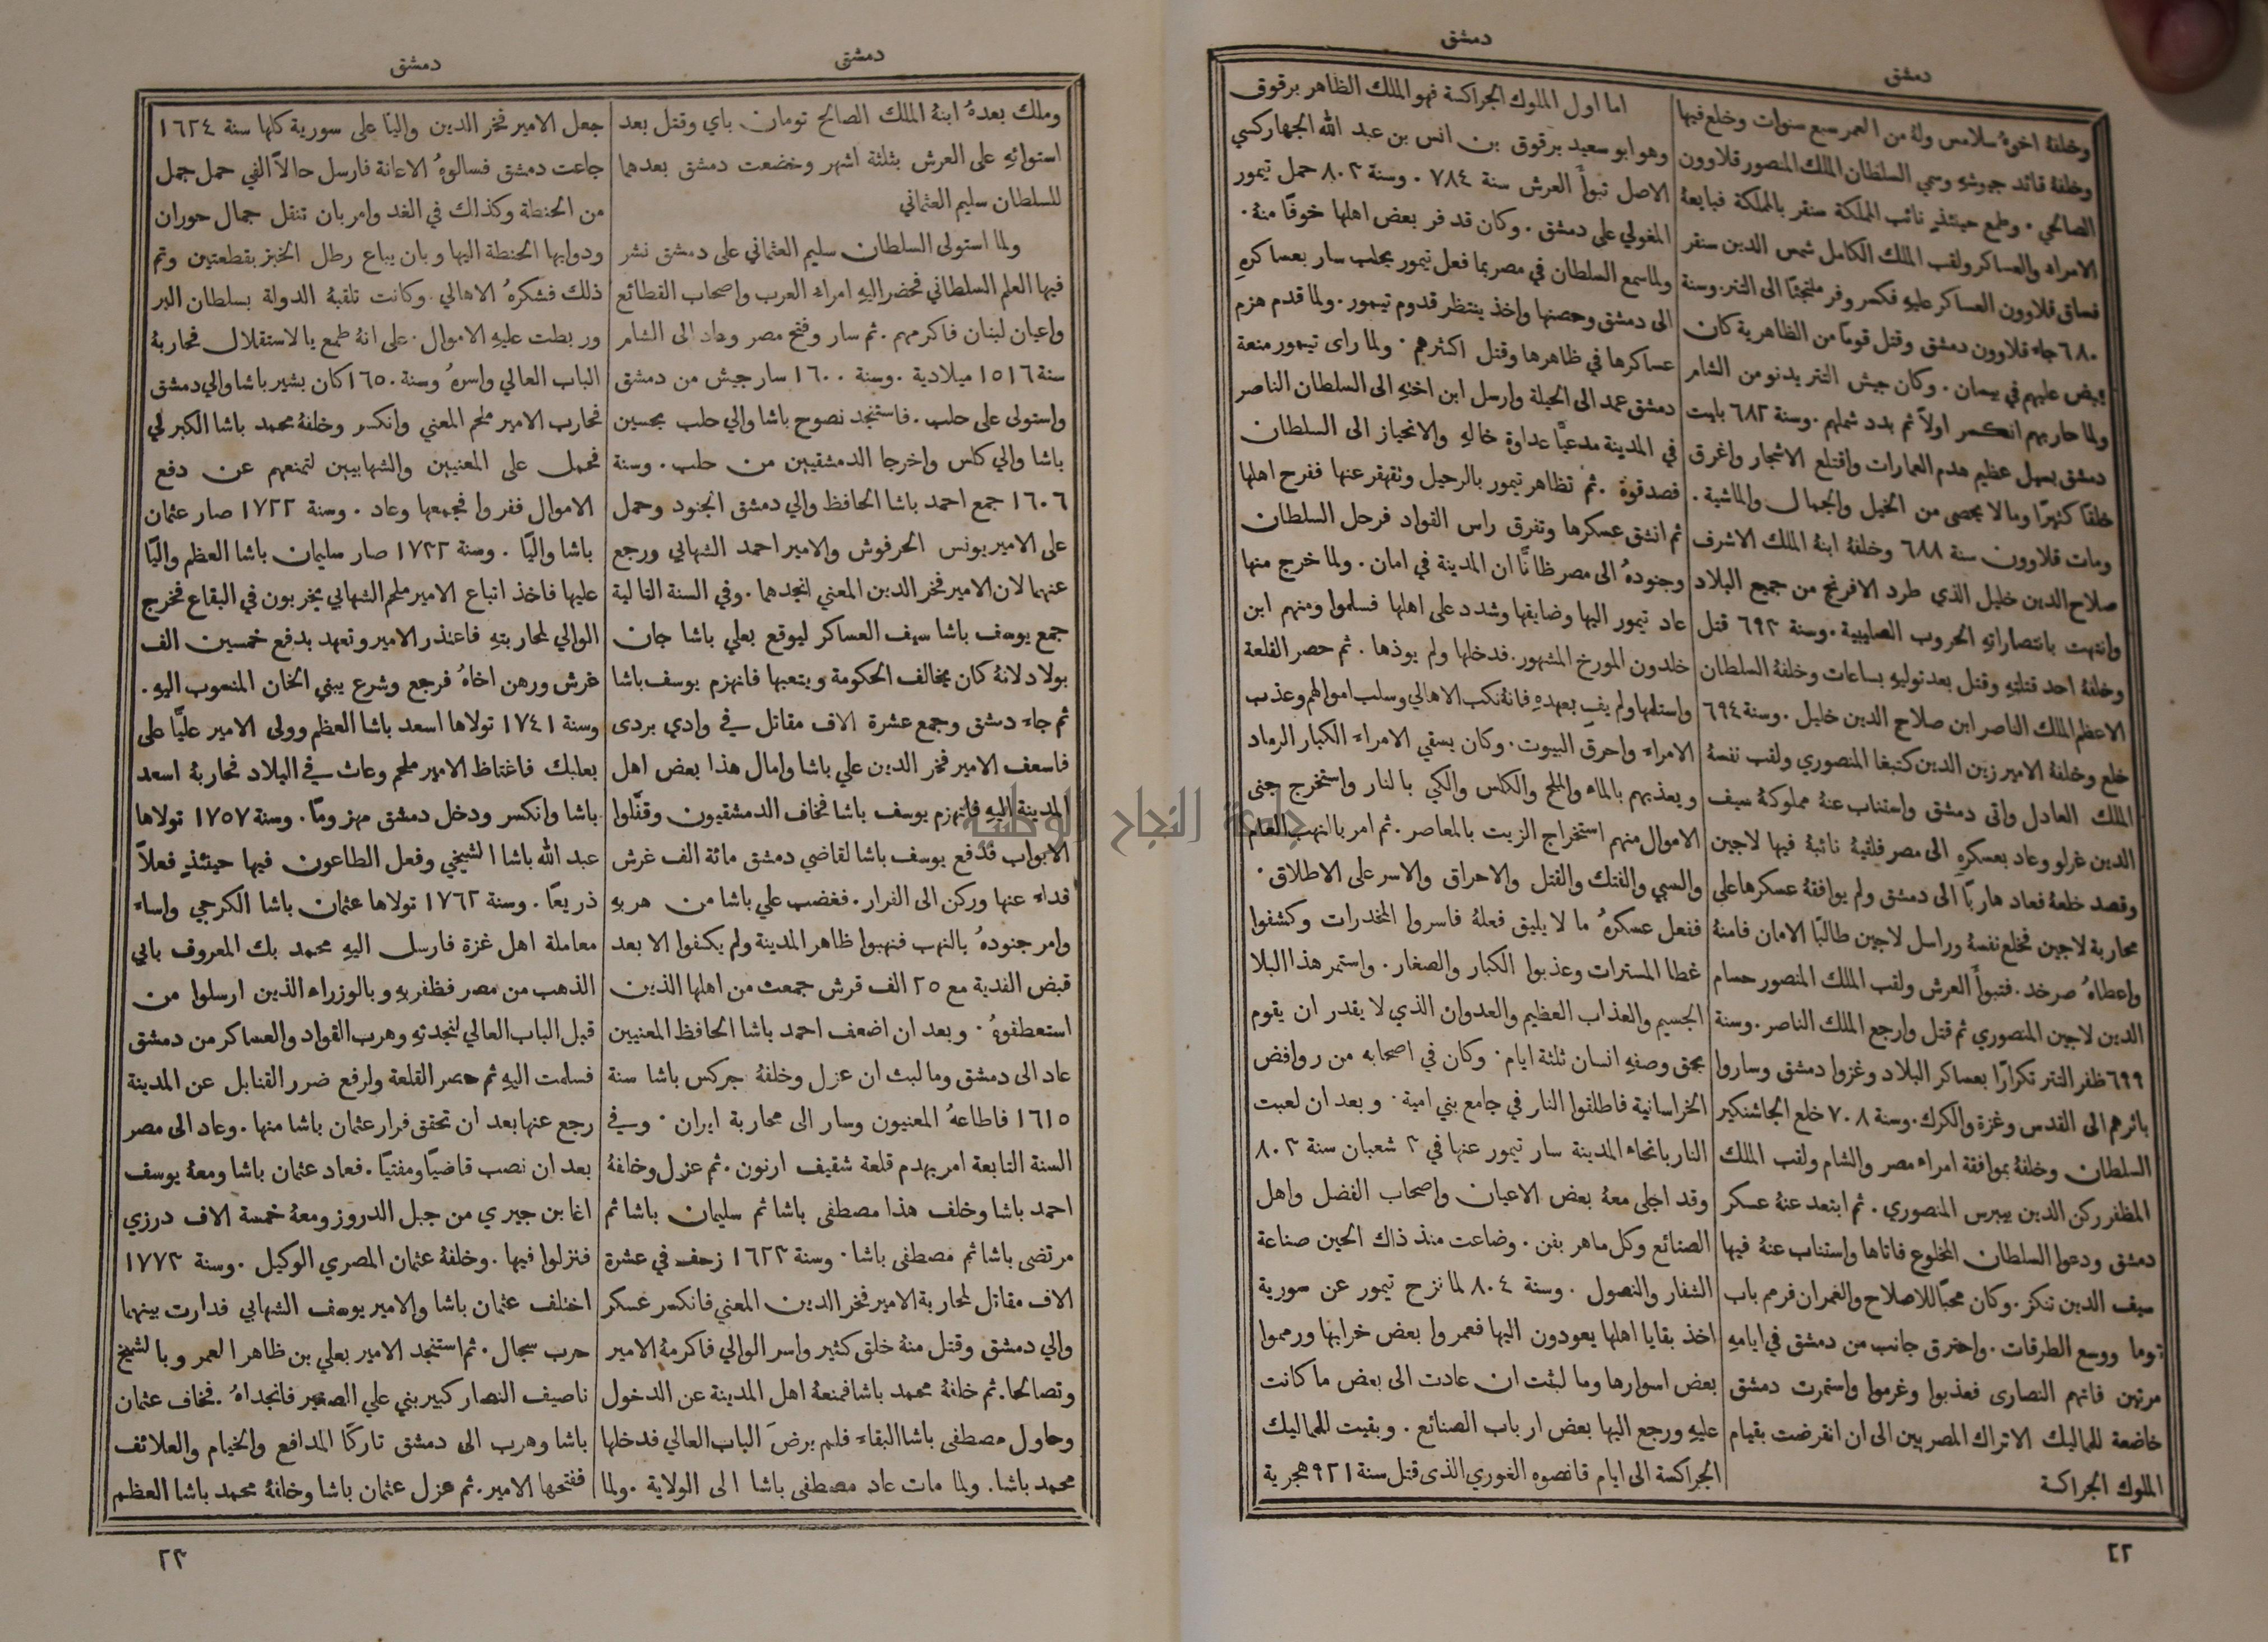 دمشق
دمشق
وخلفهُ اخوهُ سلامس ولهُ من العمر سبع سنوات وخلع فيها
وخلفهُ قائد جيوشهِ وسمي السلطان الملك المنصور قلاوون
الصالحي . وطمع حينئذٍ نائب المملكة سنقر بالمملكة فبايعهُ
الامراء والعساكر ولقب الملك الكامل شمس الدين سنقر
فساق قلاوون العساكر عليهِ فكسر وفر ملتجئًا الى التتر . وسنة
٦٨٠ جاء قلاوون دمشق وقتل قومًا من الظاهرية كان
يقبض عليهم في بيسان . وكان جيش التتر يدنو من الشام
ولما حاربهم انكسر اولاً ثم بدد شملهم . وسنة ٦٨٢ بليت
دمشق بسيل عظيم هدم العمارات واقتلع الاشجار واغرق
خلقًا كثيرًا وما لا يحصى من الخيل والجمال والماشية .
ومات قلاوون سنة ٦٨٨ وخلفهُ ابنهُ الملك الاشرف
صلاح الدين خليل الذي طرد الافرنج من جميع البلاد
وانتهت بانتصاراتهِ الحروب الصليبية . وسنة ٦٩٣ قتل
وخلفهُ احد قتلتهِ وقتل بعد توليهِ بساعات وخلفهُ السلطان
الاعظم الملك الناصر ابن صلاح الدين خليل . وسنة ٦٩٤
خلع وخلفهُ الامير زين الدين كتبغا المنصوري ولقب نفسهُ
الملك العادل واتى دمشق واستناب عنهُ مملوكهُ سيف
الدين غرلو وعاد بعسكرهِ الى مصر فلقيهُ نائبهُ فيها لاجين
وقصد خلعهُ فعاد هاربًا الى دمشق ولم يوافقهُ عسكرها على
محاربة لاجين فخلع نفسهُ وراسل لاجين طالبًا الامان فامنهُ
واعطاهُ صرخد . فتبوأ العرش ولقب الملك المنصور حسام
الدين لاجين المنصوري ثم قتل وارجع الملك الناصر . وسنة
٦٩٩ ظفر التتر تكرارًا بعساكر البلاد وغزوا دمشق وساروا
باثرهم الى القدس وغزة والكرك . وسنة ٧٠٨ خلع الجاشنكير
السلطان وخلفهُ بموافقة امراء مصر والشام ولقب الملك
المظفر ركن الدين بيبرس المنصوري . ثم ابتعد عنهُ عسكر
دمشق ودعوا السلطان المخلوع فاتاها واستناب عنهُ فيها
سيف الدين تنكز . وكان محبًا للاصلاح والعمران فرمم باب
توما ووسع الطرقات . واحترق جانب من دمشق في ايامهِ
مرتين فاتهم النصارى فعذبوا وغرموا واستمرت دمشق
خاضعة للماليك الاتراك المصريين الى ان انقرضت بقيام
الملوك الجراكسة
اما اول الملوك الجراكسة فهو الملك الظاهر برقوق
وهو ابو سعيد برقوق بن انس بن عبد الله الجهاركسي
الاصل تبوأ العرش سنة ٧٨٤ . وسنة ٨٠٣ حمل تيمور
المغولي على دمشق . وكان قد فر بعض اهلها خوفًا منهُ .
ولما سمع السلطان في مصر بما فعل تيمور بحلب سار بعساكرهِ
الى دمشق وحصنها واخذ ينتظر قدوم تيمور . ولما قدم هزم
عساكرها في ظاهرها وقتل اكثرهم . ولما راى تيمور منعة
دمشق عمد الى الحيلة وارسل ابن اختهِ الى السلطان الناصر
في المدينة مدعيًا عداوة خالهِ والانحياز الى السلطان
فصدقوهُ . ثم تظاهر تيمور بالرحيل وتقهقر عنها ففرح اهلها
ثم انشق عسكرها وتفرق راس القواد فرحل السلطان
وجنودهُ الى مصر ظانًّا ان المدينة في امان . ولما خرج منها
عاد تيمور اليها وضايقها وشدد على اهلها فسلموا ومنهم ابن
خلدون المورخ المشهور . فدخلها ولم يوذها . ثم حصر القلعة
واستلمها ولم يفِ بعهدهِ فانهُ نكب الاهالي وسلب اموالهم وعذب
الامراء واحرق البيوت . وكان يسقي الامراء الكبار الرماد
ويعذبهم بالماء والملح والكلس والكي بالنار واستخرج جنى
الاموال منهم استخراج الزيت بالمعاصر . ثم امر بالنهب العام
والسبي والفتك والقتل والاحراق والاسر على الاطلاق .
ففعل عسكرهُ ما لا يليق فعلهُ فاسروا المخدرات وكشفوا
غطا المسترات وعذبوا الكبار والصغار . واستمر هذا البلا
الجسيم والعذاب العظيم والعدوان الذي لا يقدر ان يقوم
بحق وصفهِ انسان ثلثة ايام . وكان في اصحابه من روافض
الخراسانية فاطلقوا النار في جامع بني امية . وبعد ان لعبت
النار بانحاء المدينة سار تيمور عنها في ٣ شعبان سنة ٨٠٣
وقد اجلى معهُ بعض الاعيان واصحاب الفضل واهل
الصنائع وكل ماهر بفن . وضاعت منذ ذاك الحين صناعة
الشفار والنصول . وسنة ٨٠٤ لما نزح تيمور عن سورية
اخذ بقايا اهلها يعودون اليها فعمروا بعض خرابها ورمموا
بعض اسوارها وما لبثت ان عادت الى بعض ما كانت
عليهِ ورجع اليها بعض ارباب الصنائع . وبقيت للماليك
الجراكسة الى ايام قانصوه الغوري الذي قتل سنة ٩٢١ هجرية
٢٢
دمشق
دمشق
وملك بعدهُ ابنهُ الملك الصالح تومان باي وقتل بعد
استوائهِ على العرش بثلثة اشهر وخضعت دمشق بعدهما
للسلطان سليم العثماني
ولما استولى السلطان سليم العثماني على دمشق نشر
فيها العلم السلطاني فحضر اليهِ امراء العرب واصحاب القطائع
واعيان لبنان فاكرمهم . ثم سار وفتح مصر وعاد الى الشام
سنة ١٥١٦ ميلادية . وسنة ١٦٠٠ سار جيش من دمشق
واستولى على حلب . فاستنجد نصوح باشا والي حلب بحسين
باشا والي كلس واخرجا الدمشقيين من حلب . وسنة
١٦٠٦ جمع احمد باشا الحافظ والي دمشق الجنود وحمل
على الامير يونس الحرفوش والامير احمد الشهابي ورجع
عنهما لان الامير فخر الدين المعني انجدهما . وفي السنة التالية
جمع يوسف باشا سيف العساكر ليوقع بعلي باشا جان
بولاد لانهُ كان يخالف الحكومة ويتعبها فانهزم يوسف باشا
ثم جاء دمشق وجمع عشرة الاف مقاتل في وادي بردى
فاسعف الامير فخر الدين علي باشا وامال هذا بعض اهل
المدينة اليهِ فانهزم يوسف باشا فخاف الدمشقيون وقفّلوا
الابواب فدفع يوسف باشا لقاضي دمشق مائة الف غرش
فداء عنها وركن الى الفرار . فغضب علي باشا من هربهِ
وامر جنودهُ بالنهب فنهبوا ظاهر المدينة ولم يكتفوا الا بعد
قبض الفدية مع ٢٥ الف قرش جمعت من اهلها الذين
استعطفوهُ . وبعد ان اضعف احمد باشا الحافظ المعنيين
عاد الى دمشق وما لبث ان عزل وخلفهُ جركس باشا سنة
١٦١٥ فاطاعهُ المعنيون وسار الى محاربة ايران . وفي
السنة التابعة امر بهدم قلعة شقيف ارنون . ثم عزل وخلفهُ
احمد باشا وخلف هذا مصطفى باشا ثم سليمان باشا ثم
مرتضى باشا ثم مصطفى باشا . وسنة ١٦٢٣ زحف في عشرة
الاف مقاتل لمحاربة الامير فخر الدين المعني فانكسر عسكر
والي دمشق وقتل منهُ خلق كثير واسر الوالي فاكرمهُ الامير
وتصالحا . ثم خلفهُ محمد باشا فمنعهُ اهل المدينة عن الدخول
وحاول مصطفى باشا البقاء فلم يرضَ الباب العالي فدخلها
محمد باشا . ولما مات عاد مصطفى باشا الى الولاية . ولما
جعل الامير فخر الدين واليًا على سورية كلها سنة ١٦٢٤
جاعت دمشق فسالوهُ الاعانة فارسل حالاً الفي حمل جمل
من الحنطة وكذلك في الغد وامر بان تنقل جمال حوران
ودوابها الحنطة اليها وبان يباع رطل الخبز بقطعتين وتم
ذلك فشكرهُ الاهالي . وكانت تلقبهُ الدولة بسلطان البر
وربطت عليهِ الاموال . على انهُ طمع بالاستقلال فحاربهُ
الباب العالي واسرهُ وسنة ١٦٥٠ كان بشير باشا والي دمشق
فحارب الامير ملحم المعني وانكسر وخلفهُ محمد باشا الكبرلي
فحمل على المعنيين والشهابيين لتمنعهم عن دفع
الاموال ففروا فجمعها وعاد . وسنة ١٧٢٢ صار عثمان
باشا واليًا . وسنة ١٧٣٣ صار سليمان باشا العظم واليًا
عليها فاخذ اتباع الامير ملحم الشهابي يخربون في البقاع فخرج
الوالي لمحاربتهِ فاعتذر الامير وتعهد بدفع خمسين الف
غرش ورهن اخاهُ فرجع وشرع يبني الخان المنسوب اليهِ .
وسنة ١٧٤١ تولاها اسعد باشا العظم وولى الامير عليًّا على
بعلبك فاغتاظ الامير ملحم وعاث في البلاد فحاربهُ اسعد
باشا وانكسر ودخل دمشق مهزومًا . وسنة ١٧٥٧ تولاها
عبد الله باشا الشيخي وفعل الطاعون فيها حينئذٍ فعلاً
ذريعًا . وسنة ١٧٦٢ تولاها عثمان باشا الكرجي واساء
معاملة اهل غزة فارسل اليهِ محمد بك المعروف بابي
الذهب من مصر فظفر بهِ وبالوزراء الذين ارسلوا من
قبل الباب العالي لنجدتهِ وهرب القواد والعساكر من دمشق
فسلمت اليهِ ثم حصر القلعة ولرفع ضرر القنابل عن المدينة
رجع عنها بعد ان تحقق فرار عثمان باشا منها . وعاد الى مصر
بعد ان نصب قاضيًا ومفتيًا . فعاد عثمان باشا ومعهُ يوسف
اغا بن جبري من جبل الدروز ومعهُ خمسة الاف درزي
فنزلوا فيها . وخلفهُ عثمان المصري الوكيل . وسنة ١٧٧٣
اختلف عثمان باشا والامير يوسف الشهابي فدارت بينهما
حرب سجال . ثم استنجد الامير بعلي بن ظاهر العمر وبالشيخ
ناصيف النصار كبير بني علي الصغير فانجداهُ . فخاف عثمان
باشا وهرب الى دمشق تاركًا المدافع والخيام والعلائف
ففتحها الامير . ثم عزل عثمان باشا وخلفهُ محمد باشا العظم
٢٣
جامعة النجاح الوطنية